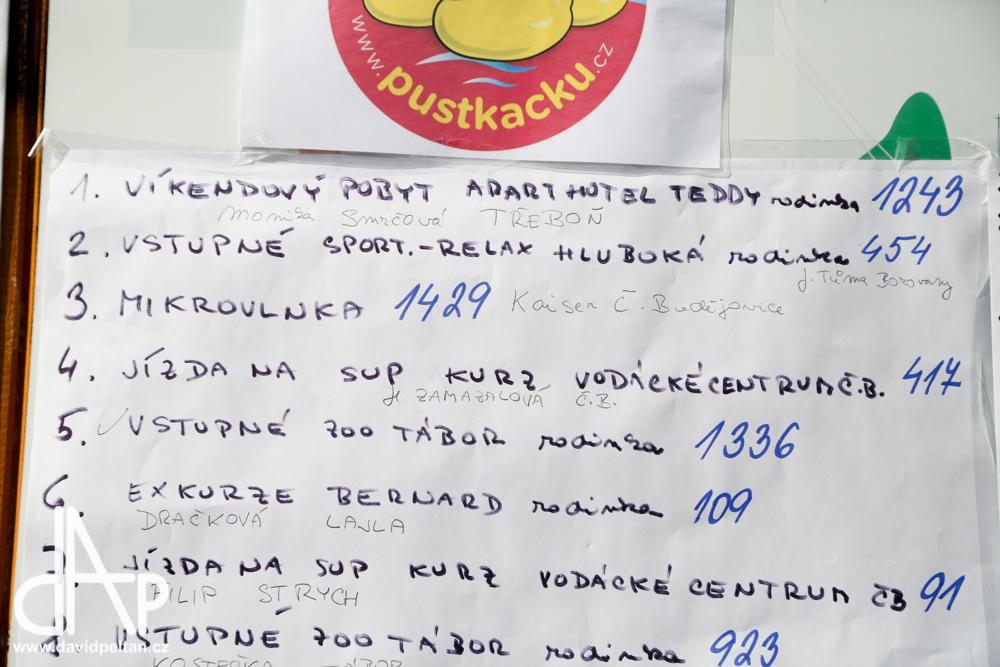 www.pustkacku.cz
1. VÍKENDOVÝ POBYT APARTHOTEL TEDDY rodinka 1243
Monika Smrčová TŘEBOŇ
2. VSTUPNÉ SPORT.-RELAX HLUBOKÁ rodinka 454
J. Tůma Borovany
3. MIKROVLNKA 1429 Kaiser Č. Budějovice
4. JÍZDA NA SUP KURZ VODÁCKÉ CENTRUM Č.B. 417
ZAMAZALOVÁ Č.B.
5. VSTUPNÉ ZOO TÁBOR rodinka 1336
6. EXKURZE BERNARD rodinka 109
DRAČKOVÁ
7. JÍZDA NA SUP KURZ VODÁCKÉ CENTRUM ČB 91
FILIP STRYCH
8 VSTUPNÉ ZOO TÁBOR rodinka 923
TÁBOR
dAp
www.davidpeltan.cz